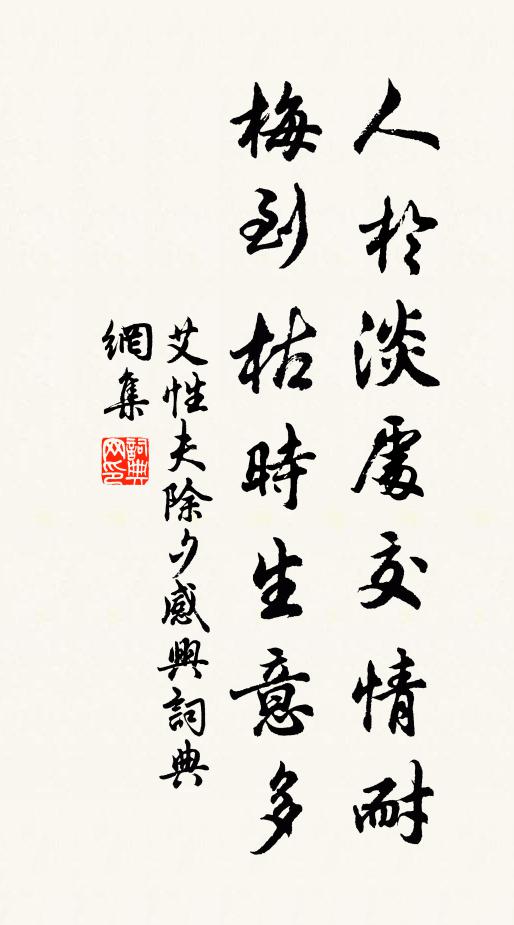 人於淡處交情耐
梅到枯時生意多
艾性夫除夕感興詞典
網集
詞典
网印